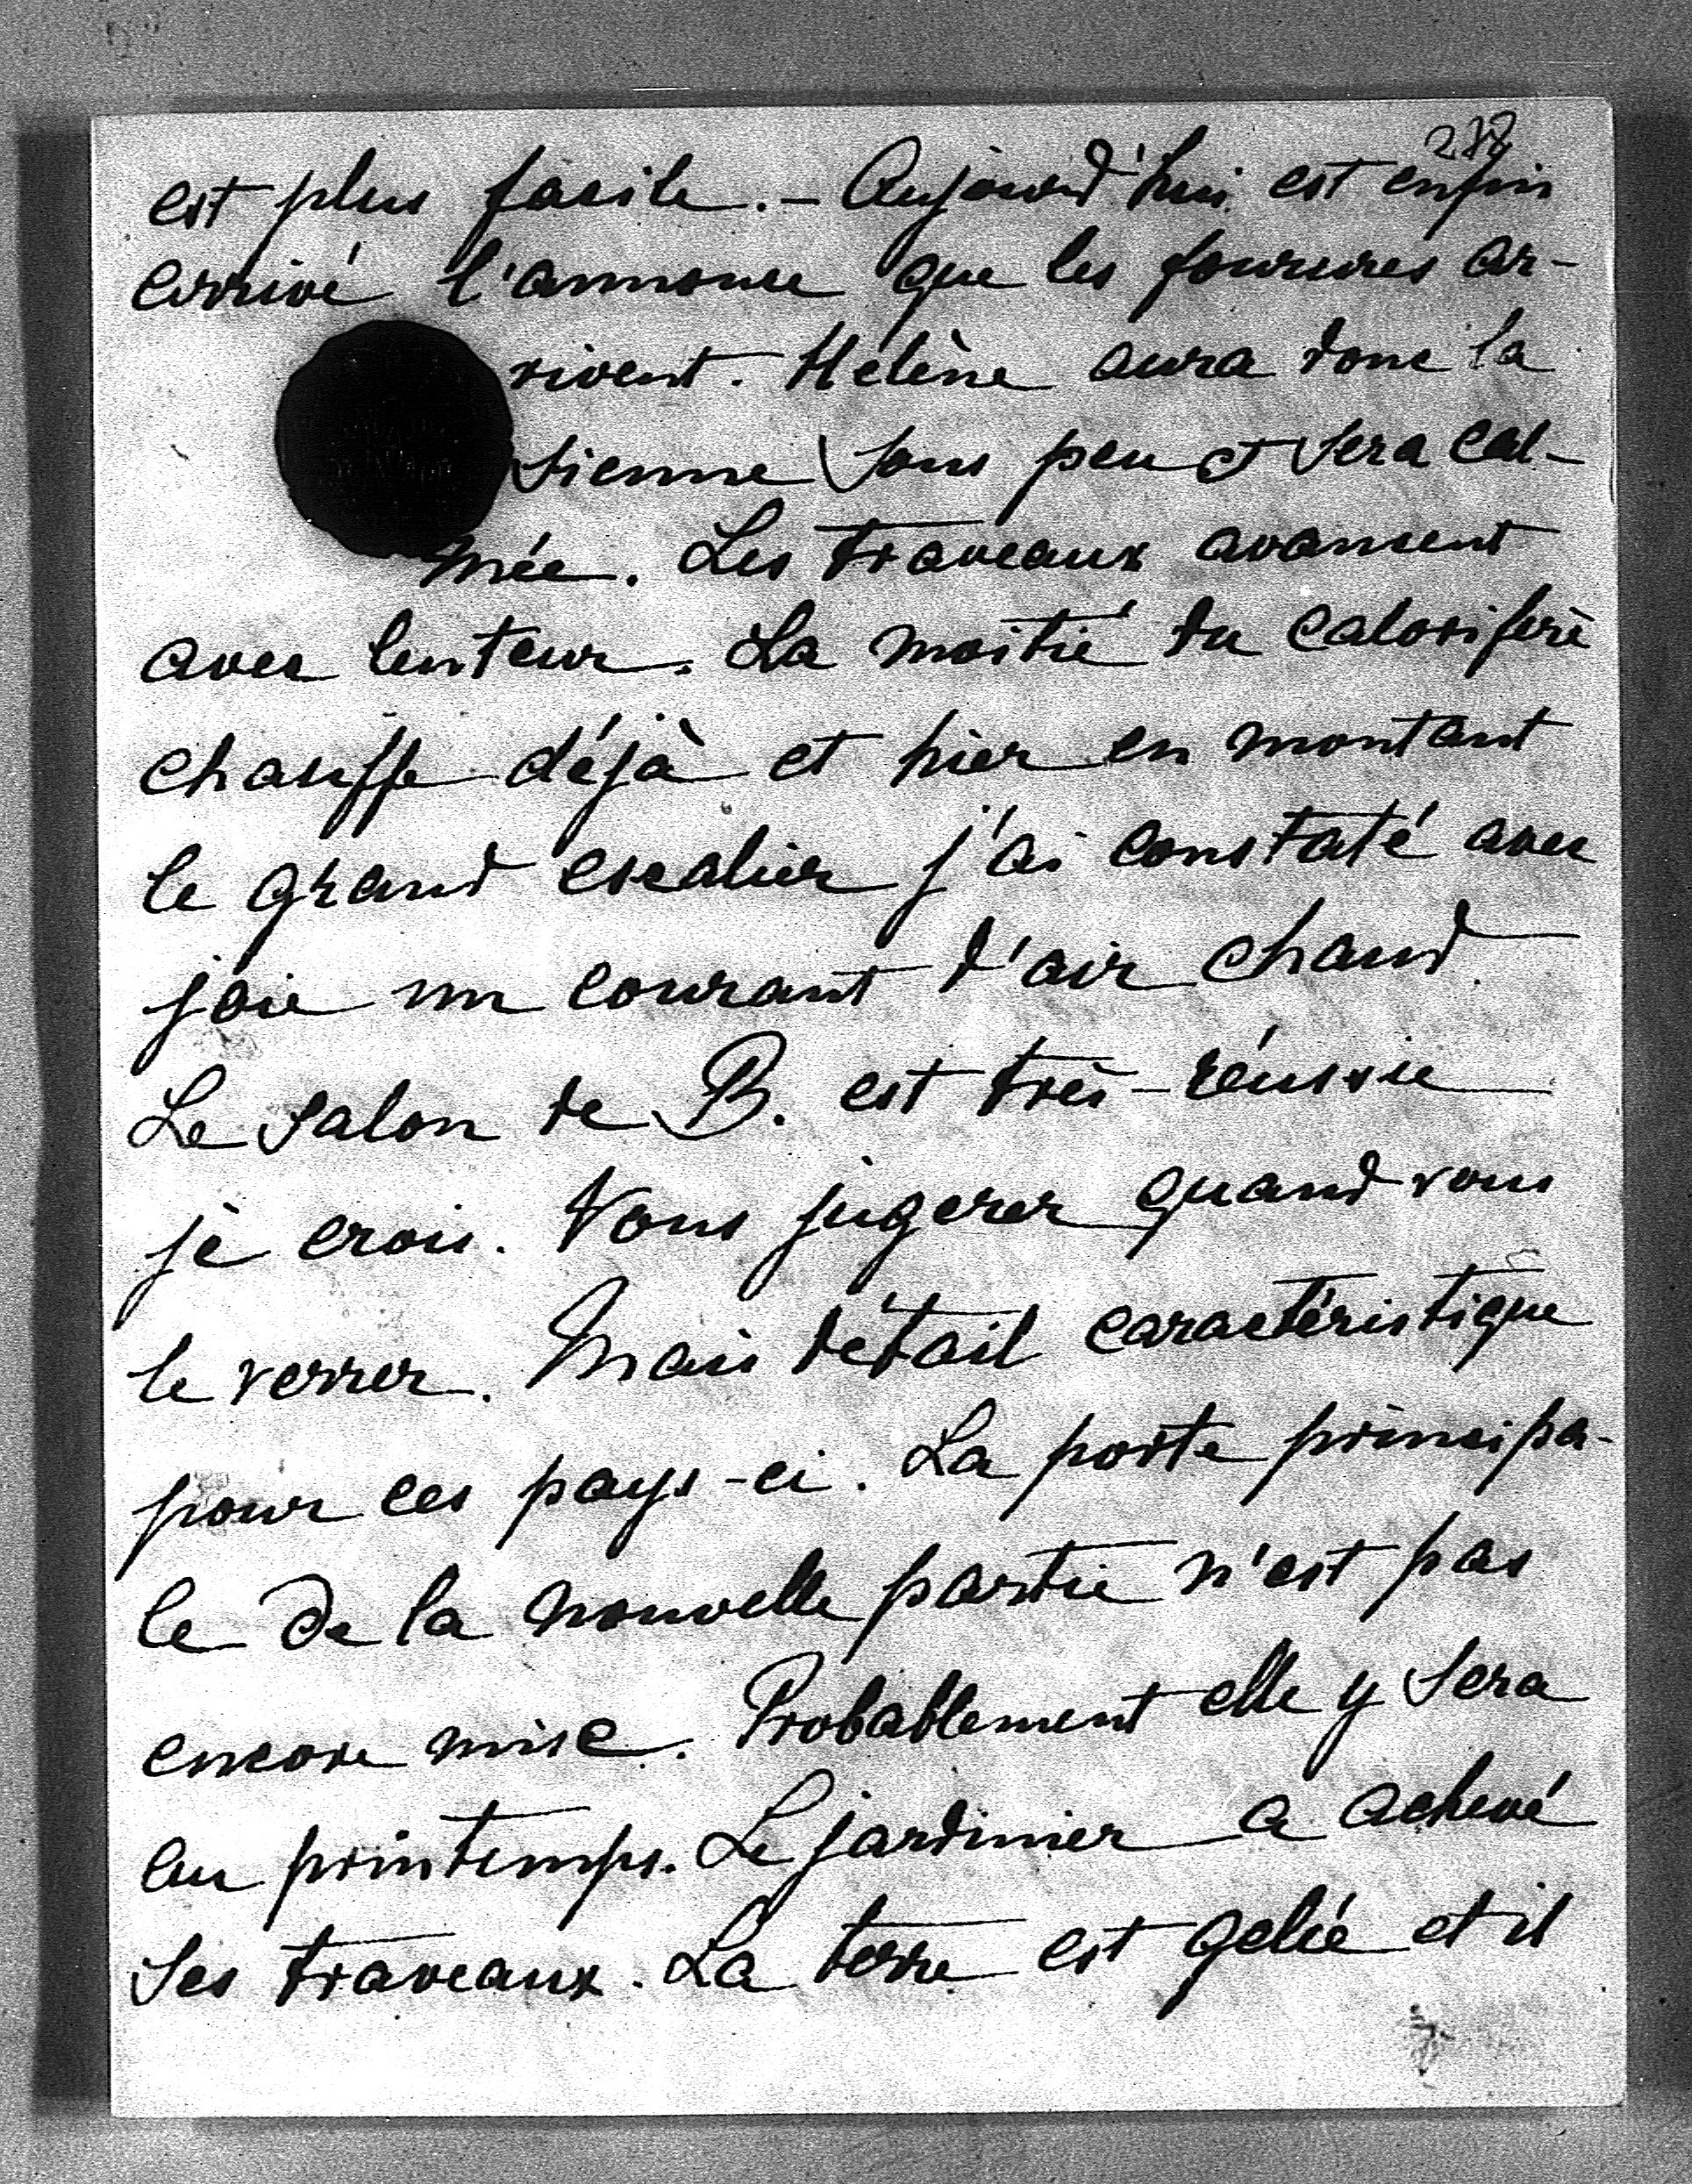 278
est plus facile. – Aujourd'hui est enfin
arrivé l'annonce que les fourures ar-
rivent. Hélène aura donc la
sienne sous peu et sera cal-
mée. Les traveaux avancent
avec lenteur. La moitié du calorifère
chauffe déjà et hier en montant
le grand escalier j'ai constaté avec
joie un courant d'air chaud.
Le salon de B. est très-réussie
je crois. Vous jugerez quand vous
le verrez. Mais détail caractéristique
pour ces pays-ci. La porte principa-
le de la nouvelle partie n'est pas
encore mise. Probablement elle y sera
au printemps. Le jardinier a achevé
ses traveaux. La terre est gelée et il